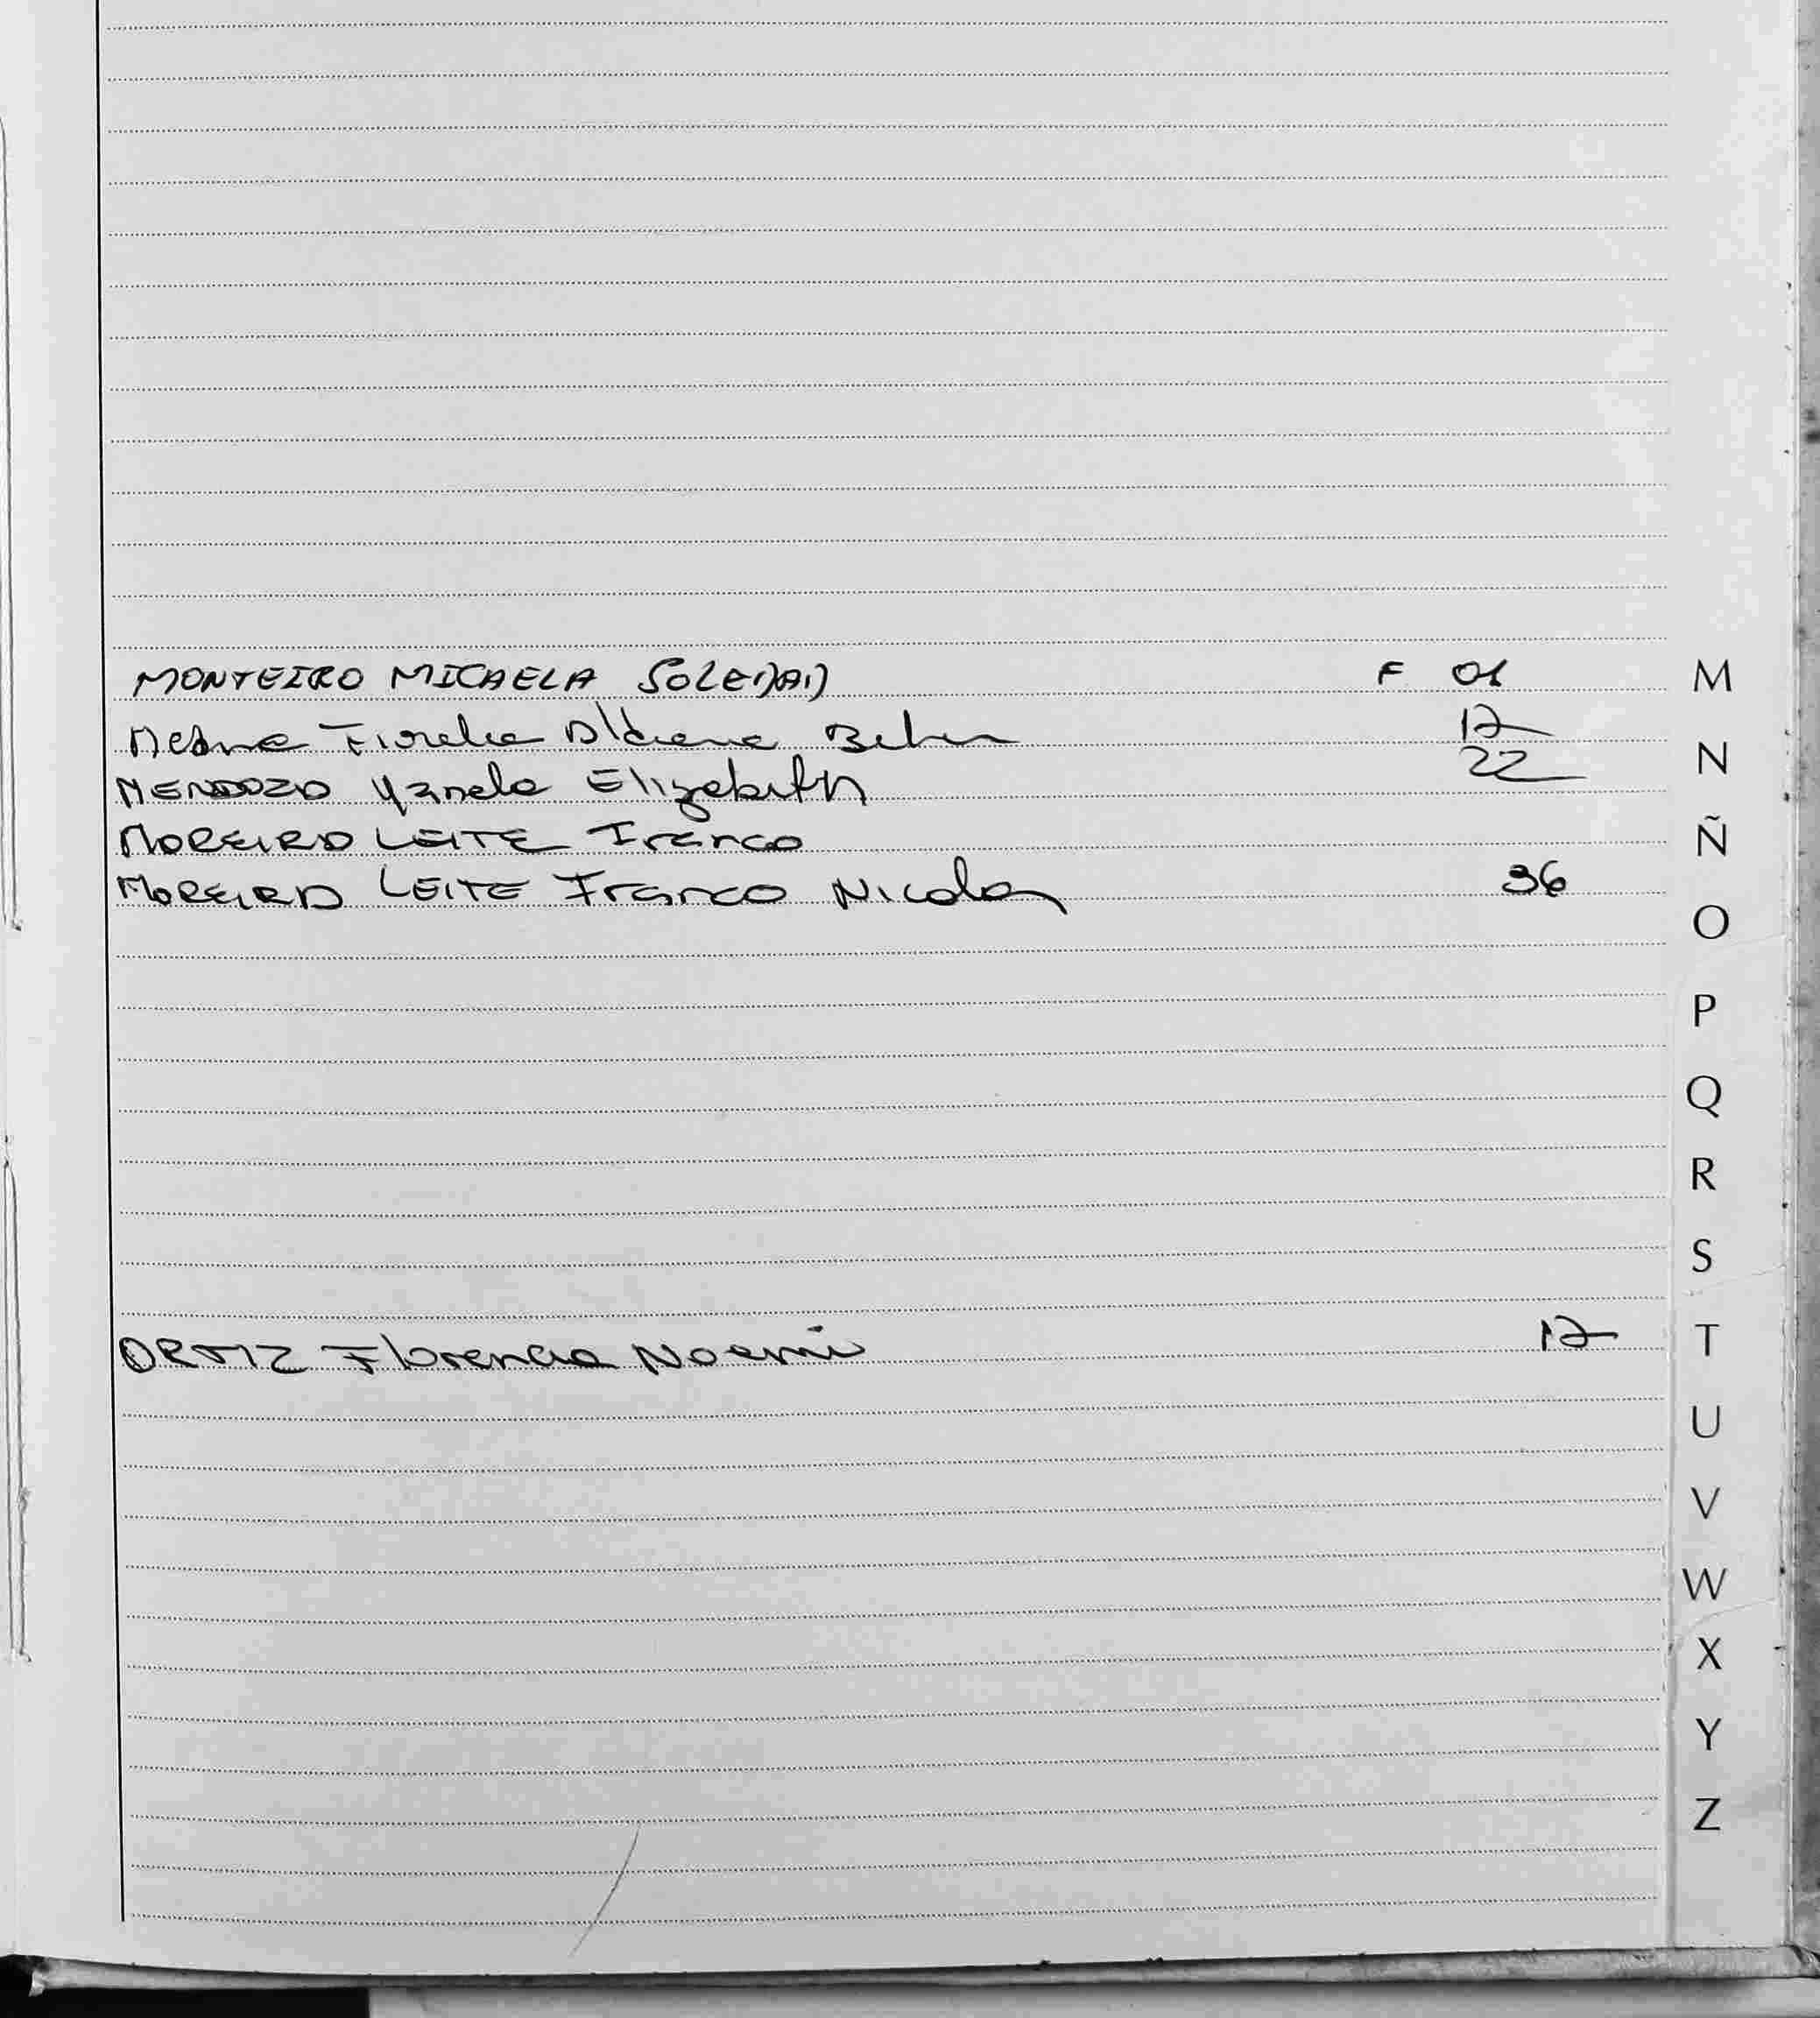 MONTEIRO MICAELA SOLEDAD F 01 M
Medina Fiorella Aldana Belen 12
N
MENDOZA Yanela Elizabeth 22
MOREIRA LEITE Franco Ñ
MOREIRA LEITE Franco Nicolas 36
O
P
Q
R
S
ORTIZ Florencia Noemi 12 T
U
V
W
X
Y
Z